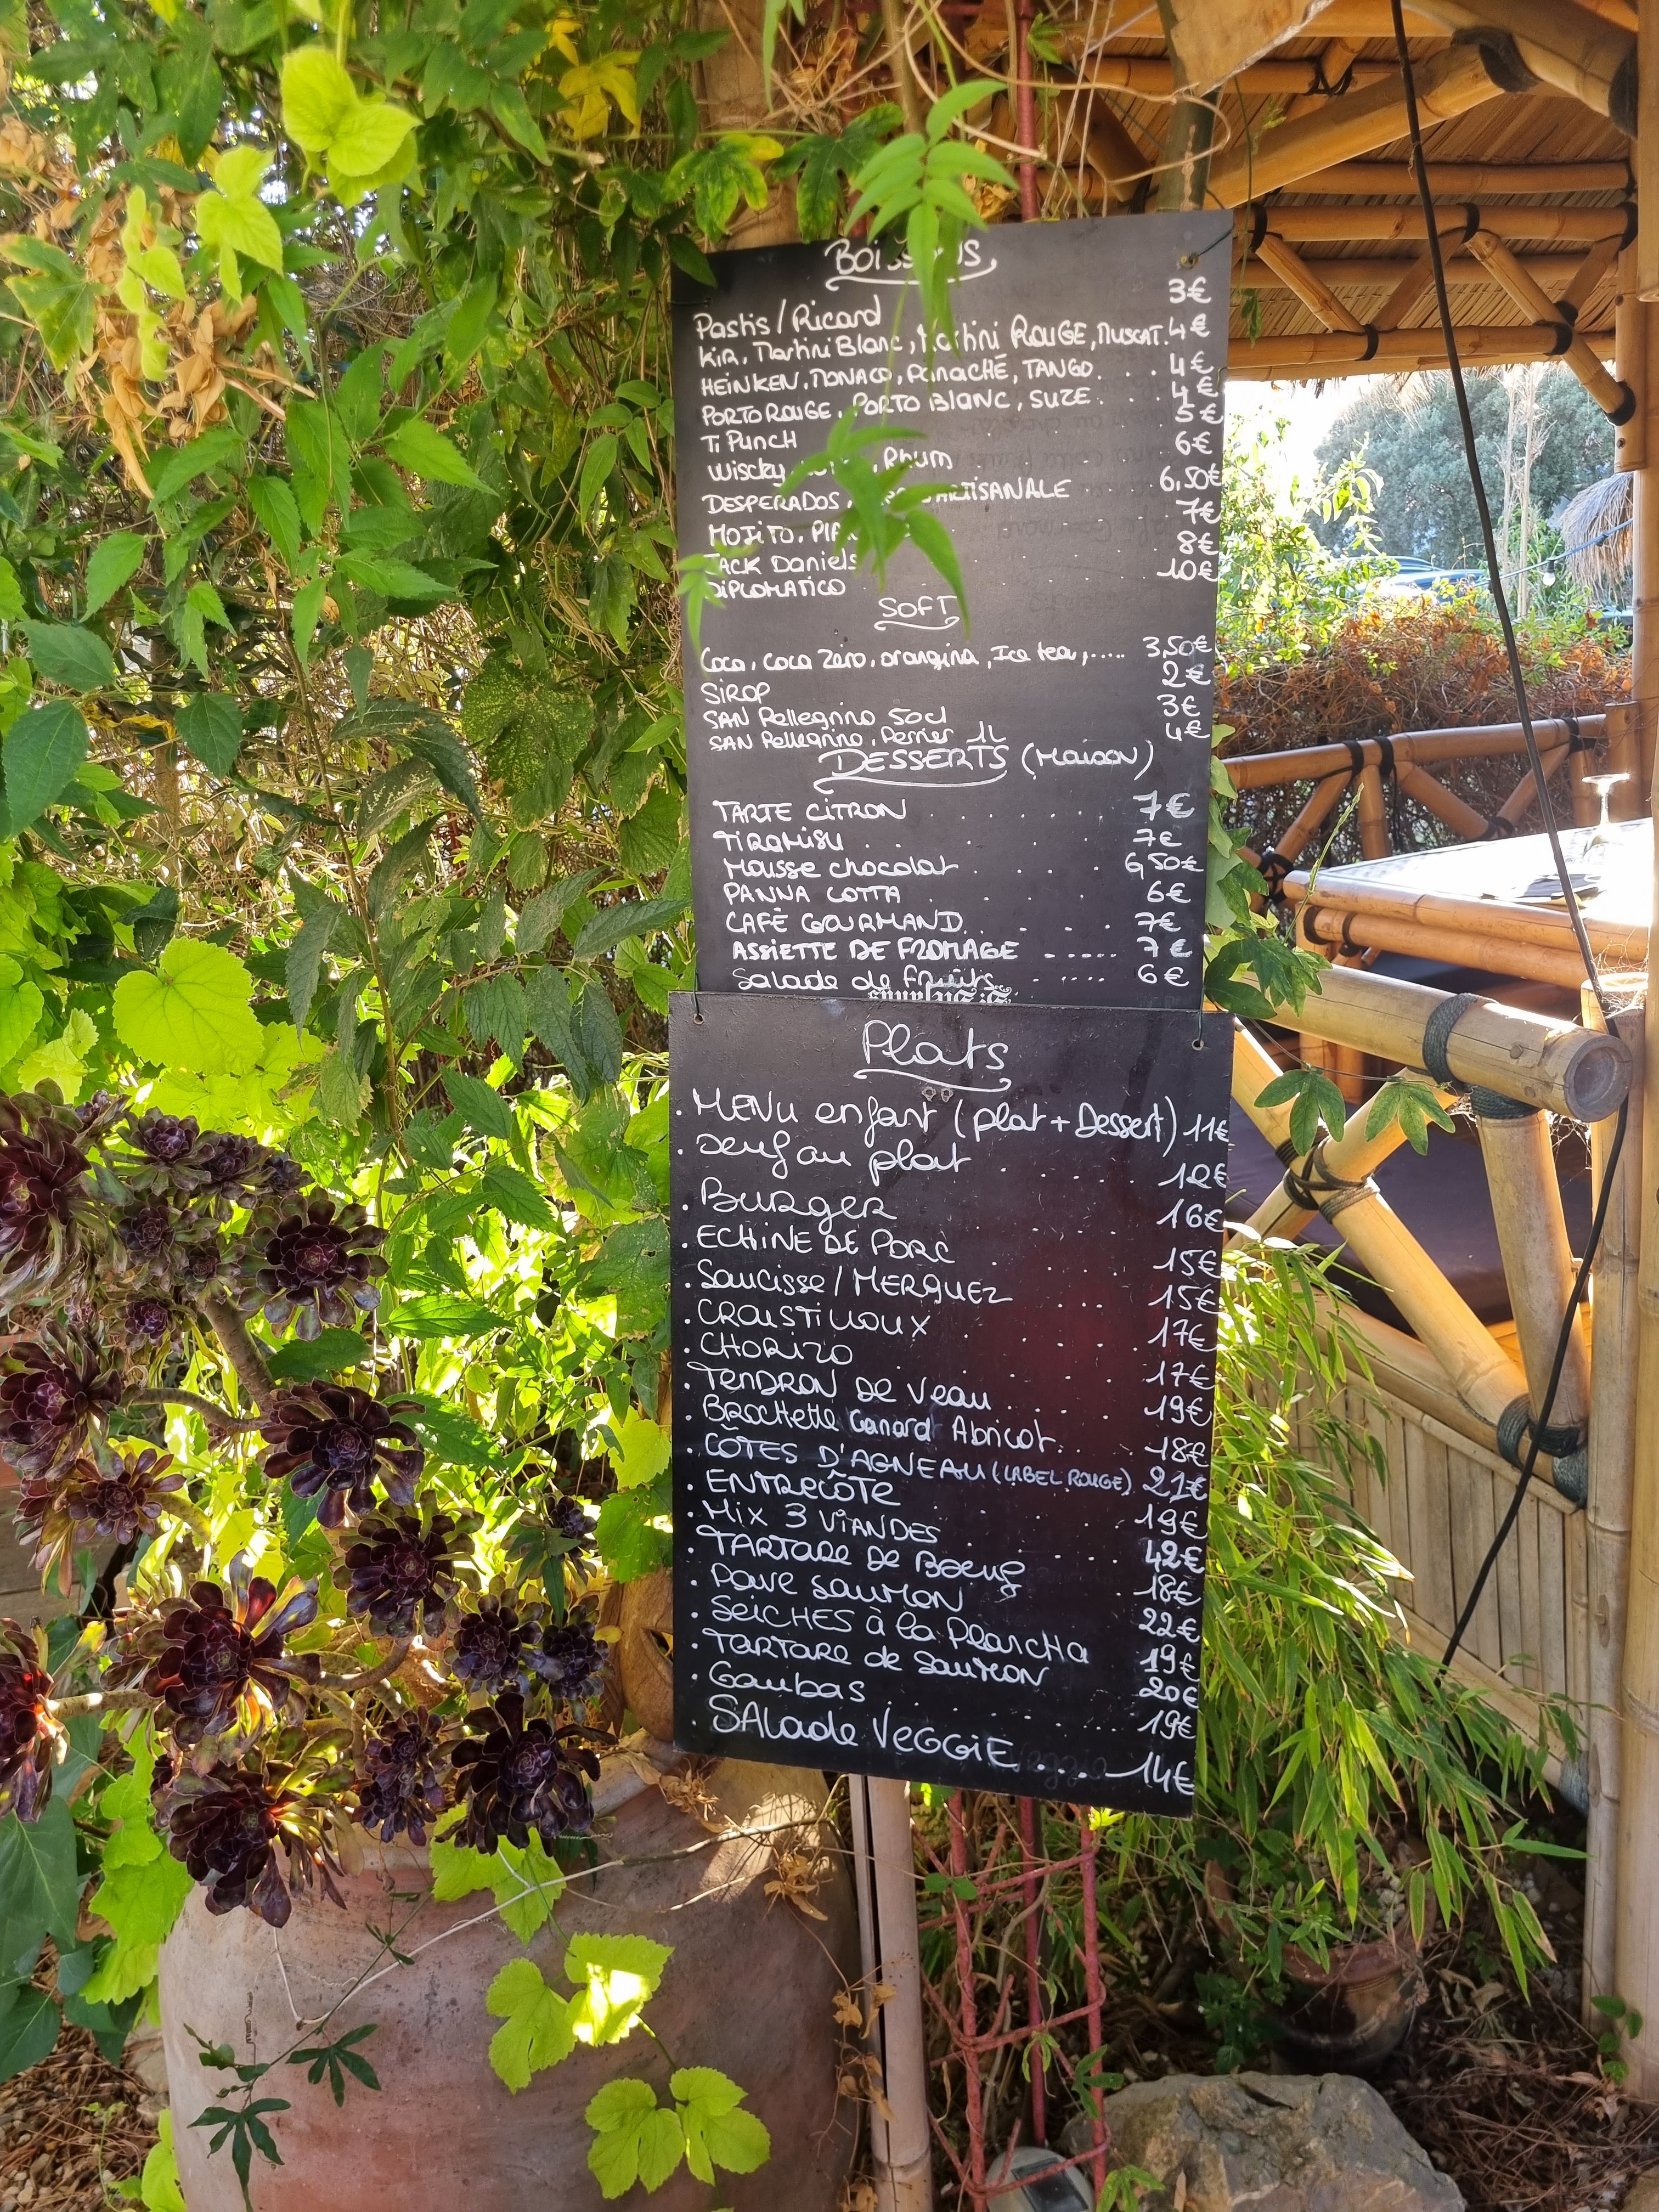 Pastis / Ricard 3€
KIR, Martini Blanc, Martini ROUGE, MUSCAT. 4€
HEINKEN, MONACO, PANACHÉ, TANGO. . . . 4€
PORTO ROUGE, PORTO BLANC, SUZE . . . . 4€
Ti PUNCH 5€
Wiscky, Rhum . 6€
DESPERADOS, ARTISANALE . . . 6,50€
MOJITO, 7€
JACK Daniels 8€
DIPLOMATICO . . . . 10€
SOFT
Coca, Coca Zéro, orangina, Ice tea, ..... 3,50€
SIROP 2€
SAN Pellegrino 50cl 3€
SAN Pellegrino, Perrier 1L 4€
DESSERTS (MAISON)
TARTE CITRON . . . . . . 7€
TIRAMISU . . . . . 7€
Mousse chocolat . . . . 6,50€
PANNA COTTA . . . . . 6€
CAFÉ GOURMAND. . . . . 7€
ASSIETTE DE FROMAGE ..... 7€
Salade de fruits . .... 6€
Plats
. MENU enfant (plat + Dessert) 11€
. oeuf au plat . . . . . 12€
. BURGER . . . . 16€
. ECHINE DE PORC . . . . 15€
. Saucisse / MERGUEZ . . . 15€
. CROUSTILLOUX . . . . 17€
. CHORIZO . . . . 17€
. TENDRON DE Veau . . . . 19€
. Brochette Canard Abricot. . . 18€
. CÔTES D'AGNEAU (LABEL ROUGE) 21€
. ENTRECÔTE . . . . 19€
. MIX 3 VIANDES . . . . 42€
. TARTARE DE Boeuf . 18€
. PAVE SAUMON . . . 22€
. SEICHES à la PlanCHA 19€
. TARTARE de SAUMON . . 20€
. Gambas . . . . . 19€
. SALade VEGGIE . . . . 14€